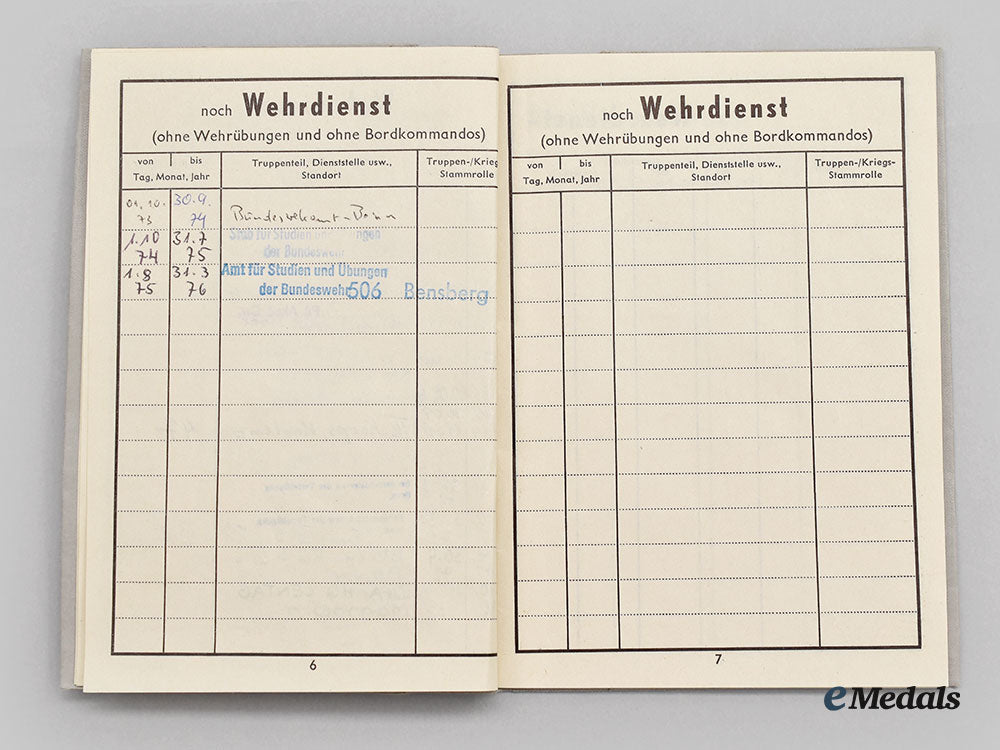 noch Wehrdienst
(ohne Wehrübungen und ohne Bordkommandos)
von | bis
Tag, Monat, Jahr
Truppenteil, Dienststelle usw.,
Standort
Truppen-/Krieg
Stammrolle
01.10. 30.9.
73 74
1.10 31.7
74 75
Stab für Studien und ngen
der Bundeswehr
1.8 31.3
75 76
Amt für Studien und Übungen
der Bundeswehr 506 Bensberg
6
noch Wehrdienst
(ohne Wehrübungen und ohne Bordkommandos)
von | bis
Tag, Monat, Jahr
Truppenteil, Dienststelle usw.,
Standort
Truppen-/Kriegs-
Stammrolle
7
eMedals